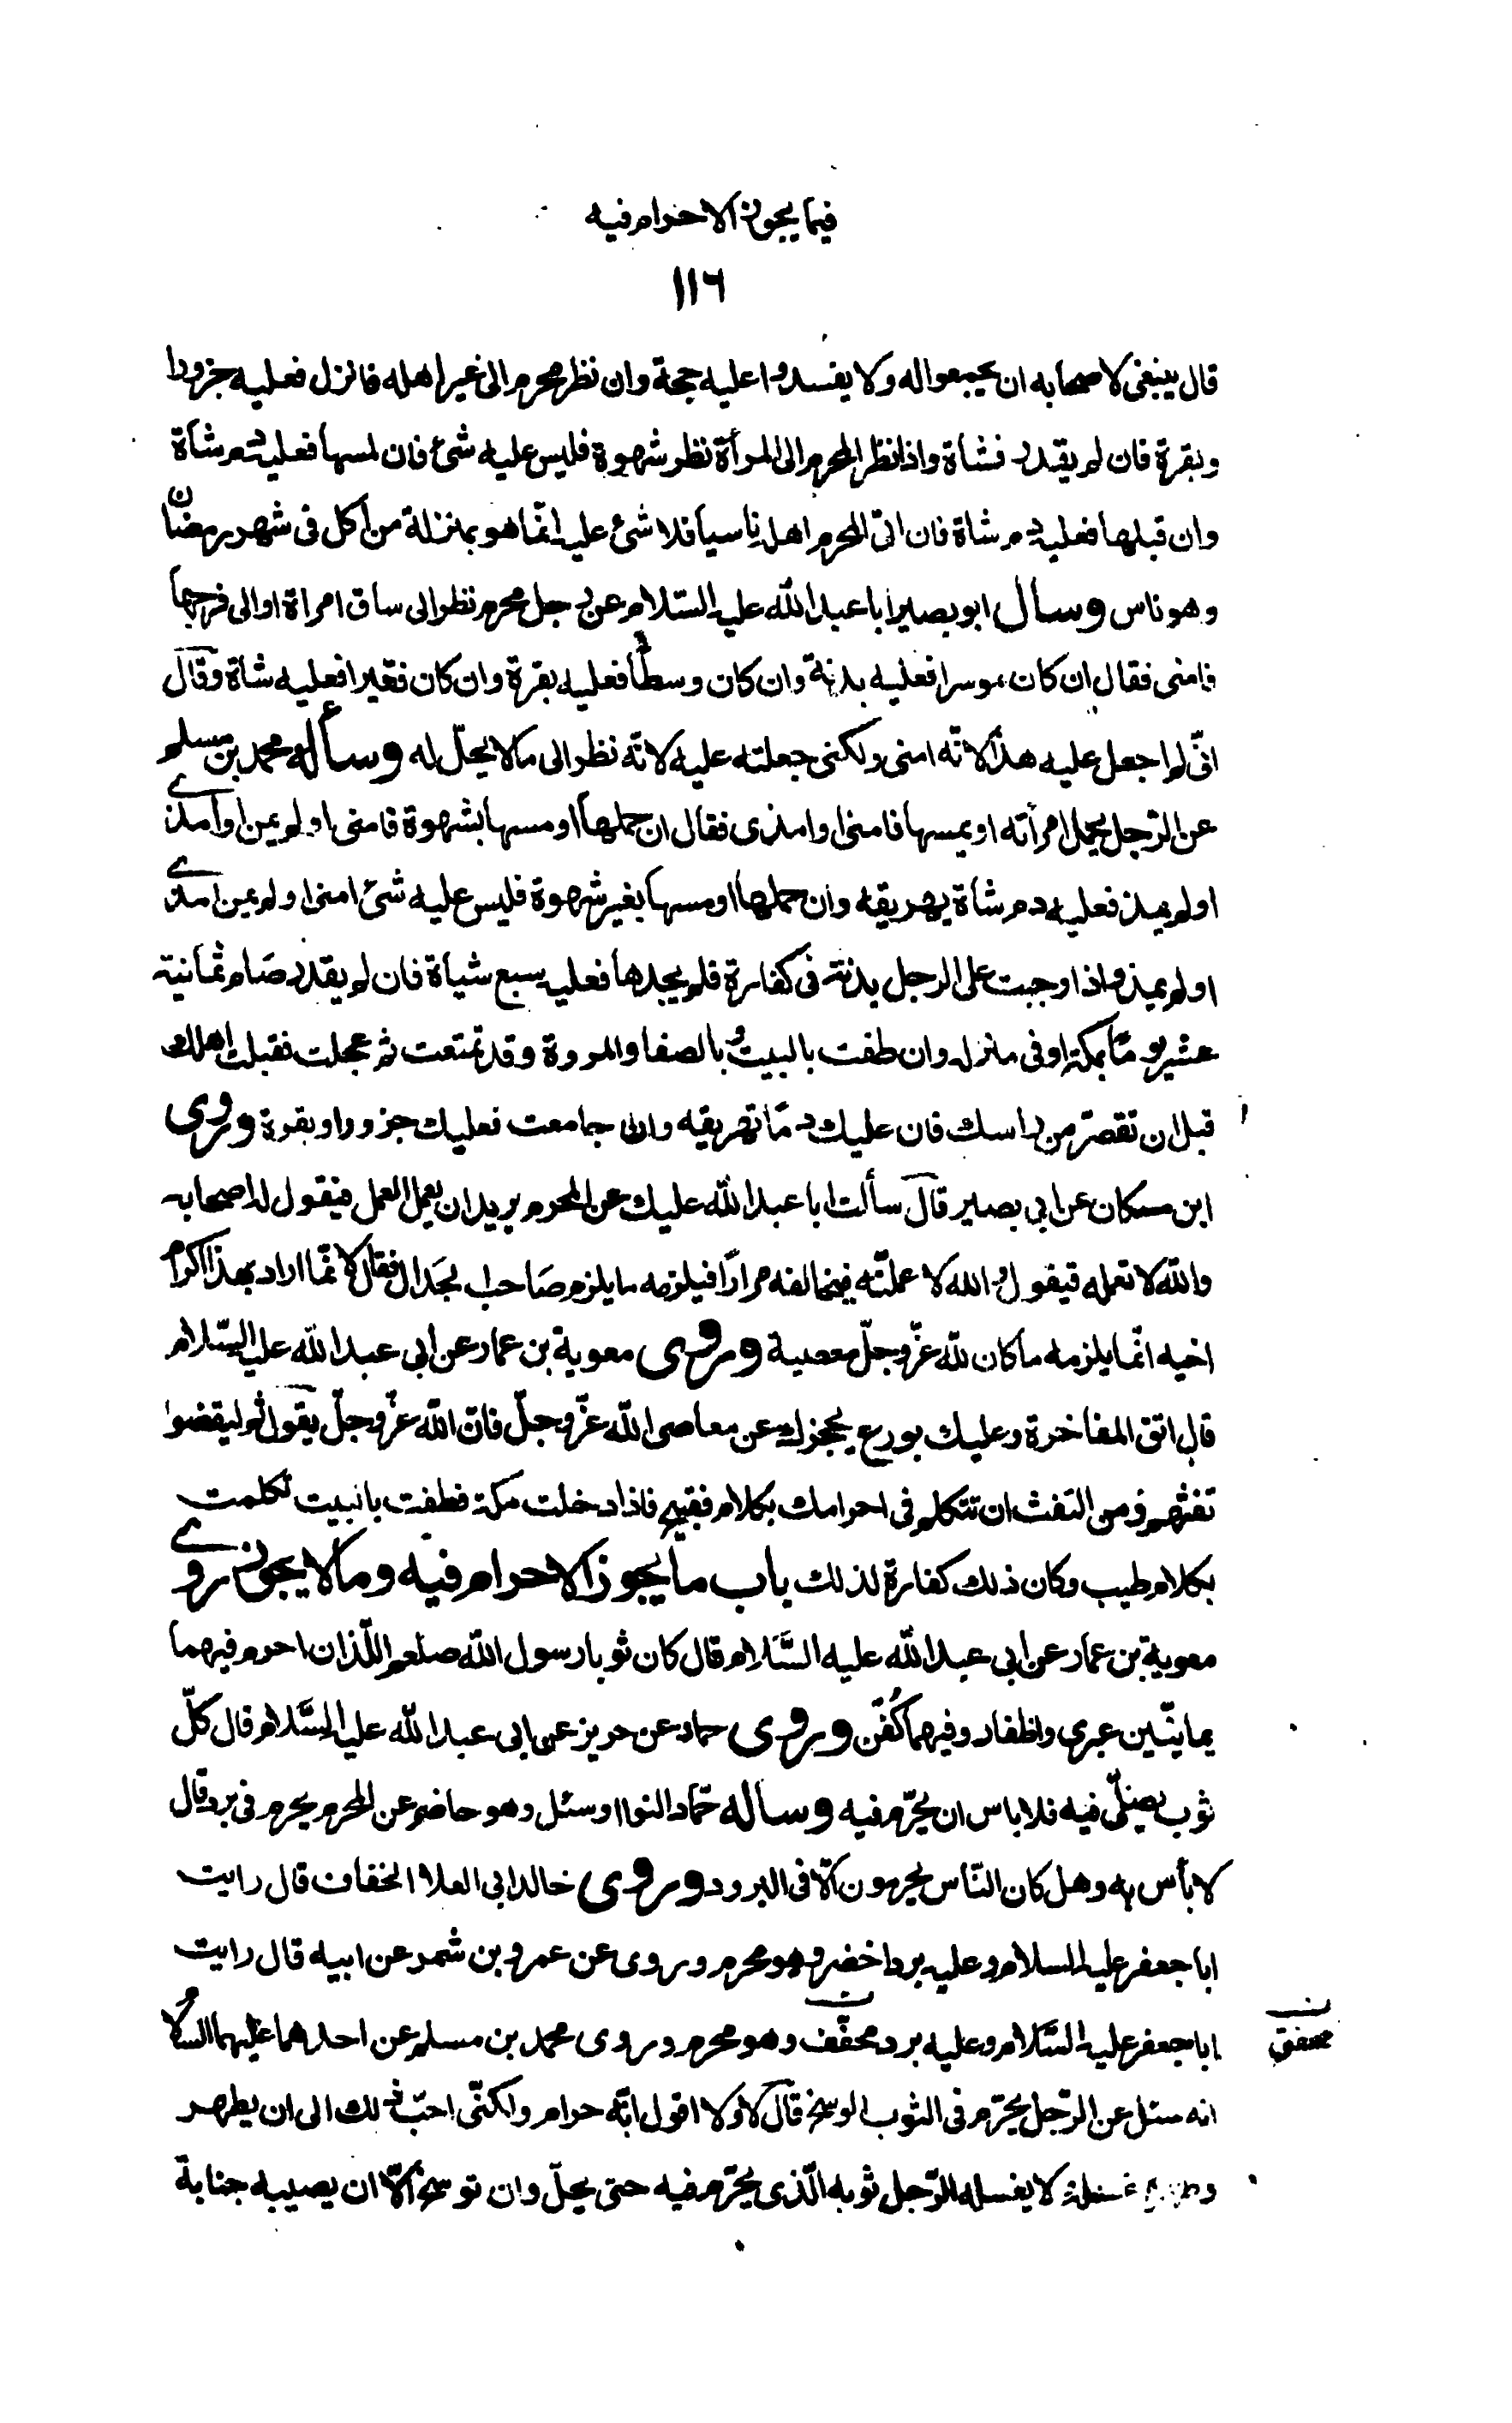 فيما يجوز الاحرام فيه
١١٦
قال ينبغى لاصحابه ان يجمعوا له ولا يفسدوا عليه حجة وان نظر محرم الى غير اهله فانزل فعليه جزورا
وبقرة فان لم يقدر فشاة واذا نظر المحرم الى المرأة نظر شهوة فليس عليه شئ فان لمسها فعليه دم شاة
وان قبلها فعليه دم شاة فان اتى المحرم اهله ناسيا فلا شئ عليه انّما هو بمنزلة من اكل فى شهر رمضان
وهو ناس وسأل ابو بصير ابا عبد الله عليه السّلام عن رجل محرم نظر الى ساق امراة او الى فرجها
فامنى فقال ان كان موسرا فعليه بدنة وان كان وسطا فعليه بقرة وان كان فقيرا فعليه شاة وقال
انّى لم اجعل عليه هذا لانّه امنى ولكنى جعلته عليه لانّه نظر الى ما لا يحلّ له وسأله محمد بن مسلم
عن الرّجل يحمل امرأته او يمسها فامنى او امذى فقال ان حملها او مسها بشهوة فامنى او لم يمن او امذى
او لم يمذ فعليه دم شاة يهريقه وان حملها او مسها بغير شهوة فليس عليه شئ امنى او لم يمن امذى
او لم يمذ واذا وجبت على الرجل بدنة فى كفارة فلم يجدها فعليه سبع شياة فان لم يقدر صَام ثمانية
عشر يومًا بمكة او فى منزله وان طفت بالبيت وبالصفا والمروة وقد تمتعت ثم عجلت فقبلت اهلك
قبل ان تقصّر من راسك فان عليك دمًا تهريقه وان جامعت فعليك جزورا وبقرة وروى
ابن مسكان عن ابى بصير قال سألت ابا عبد الله عليك عن المحرم يريد ان يعمل العمل فيقول له اصحابه
والله لا تعمله فيقول والله لا عملنّه فيخالفه مرارًا فيلزمه ما يلزم صَاحب الجَدال فقال لا انّما اراد بهذا اكرام
اخيه انّما يلزمه ما كان لله عزّ وجلّ معصية وروى معوية بن عمار عن أبى عبد الله عليه السّلام
قال اتق المفاخرة وعليك بورع يحجزك عن معاصى الله عزّ وجلّ فانّ الله عزّ وجلّ يقول ثم ليقضوا
تفثهم ومن التفث ان تتكلم فى احرامك بكلام قبيح فاذا دخلت مكة فطفت بالبيت تكلمت
بكلام طيب وكان ذلك كفارة لذلك باب ما يجوز الاحرام فيه وما لا يجوز روى
معوية بن عمار عن ابى عبد الله عليه السَّلام قال كان ثوبا رسول الله صلعم اللّذان احرم فيهما
يمانيّين عبرى واظفار وفيهما كُفّن وروى حماد عن حريز عن ابى عبد الله عليه السَّلام قال كلّ
ثوب يصلّى فيه فلا باس ان يحرّم فيه وساله حمّاد النوا او سئل وهو حاضر عن المحرم يحرم فى برد قال
لا بأس به وهل كان النّاس يحرمون الّا فى البرود وروى خالد ابى العلا الخفاف قال رايت
ابا جعفر عليه السلام وعليه برد اخضر وهو محرم وروى عن عمرو بن شمر عن ابيه قال رايت
ابا جعفر عليه السَّلام وعليه برد مخفّف وهو محرم وروى محمد بن مسلم عن احدهما عليهما السّلام
انه سئل عن الرّجل يحرّم فى الثوب الوسخ قال لا ولا اقول انّه حرام ولكنّى احبّ ذلك الى ان يطهر
غسله لا يغسله الرّجل ثوبه الّذى يحرّم فيه حتى يحلّ وان توسخ الّا ان يصيبه جنابة